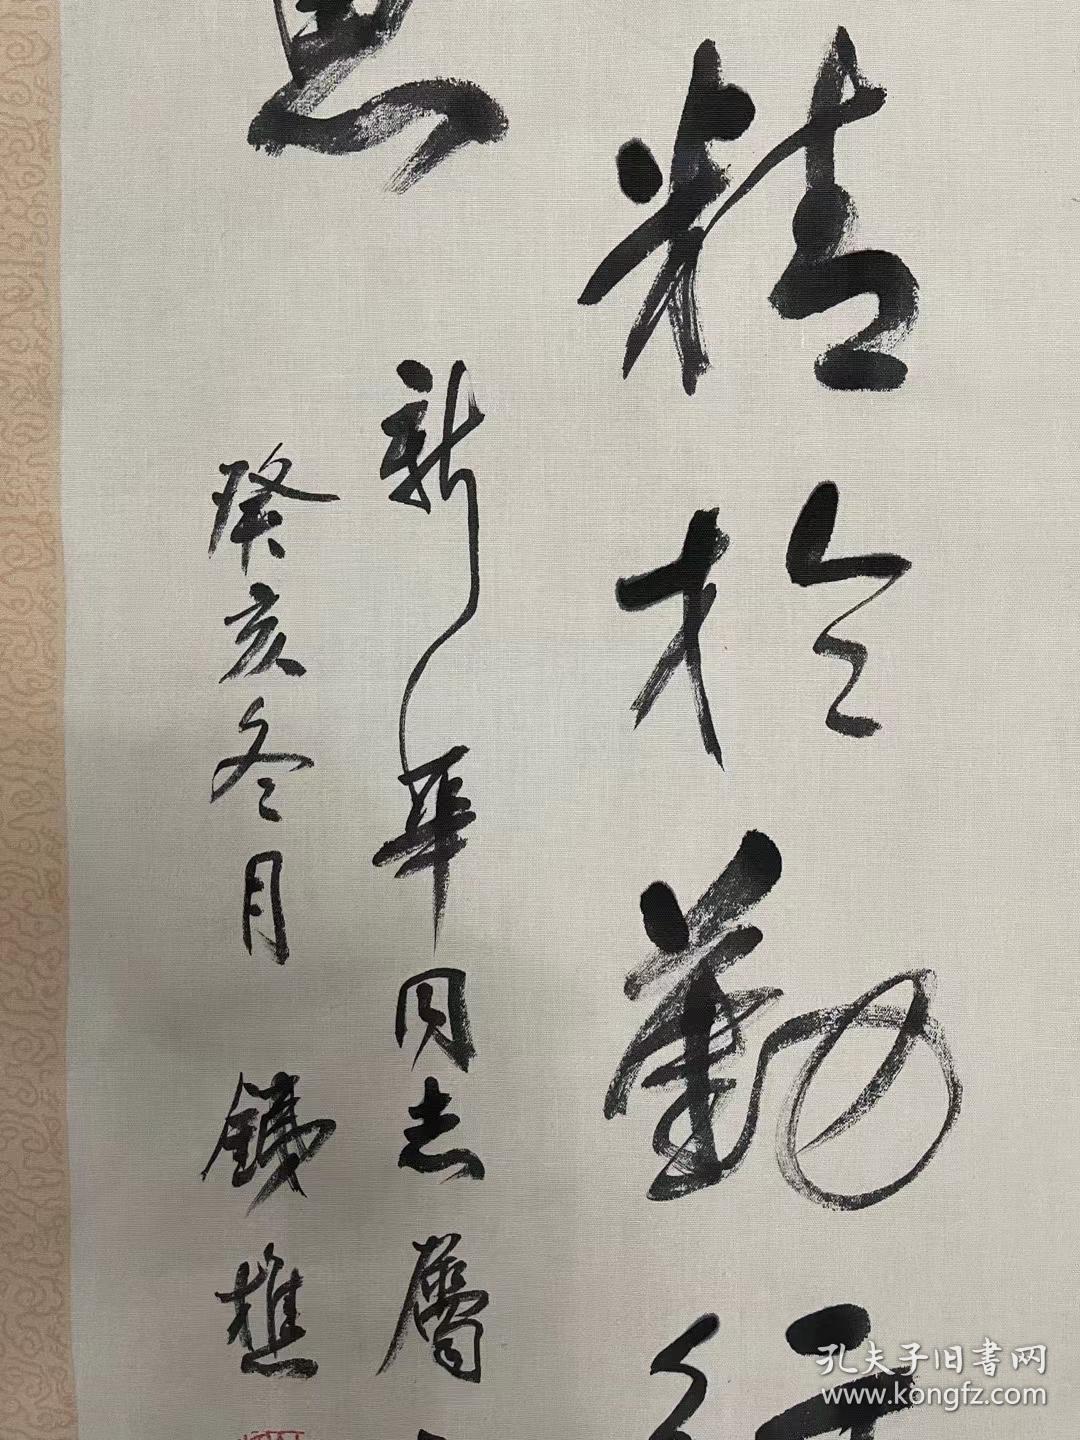 精於勤行
思
新華同志屬
癸亥冬月 鐵樵
孔夫子旧書网
www.kongfz.com